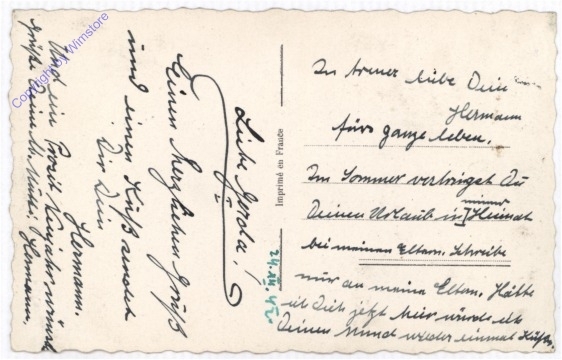 Liebe Gerda!
Einen Herzlichen Gruß
und einen Kuß sendet
Dir Dein
Hermann.
Und ein Prosit Neujahr wünscht
grüße Deine Mutter, Hermann.
In treuer liebe Dein
Hermann
fürs ganze leben.
Im Sommer verbringst Du
Deinen Urlaub in meiner Heimat
bei meinen Eltern. Schreibe
nur an meine Eltern. Hätte
ich Dich jetzt hier würde ich
Deinen Mund wieder einmal Küßen.
Imprimé en France
24. XII. 42
Copyright by Wimstore